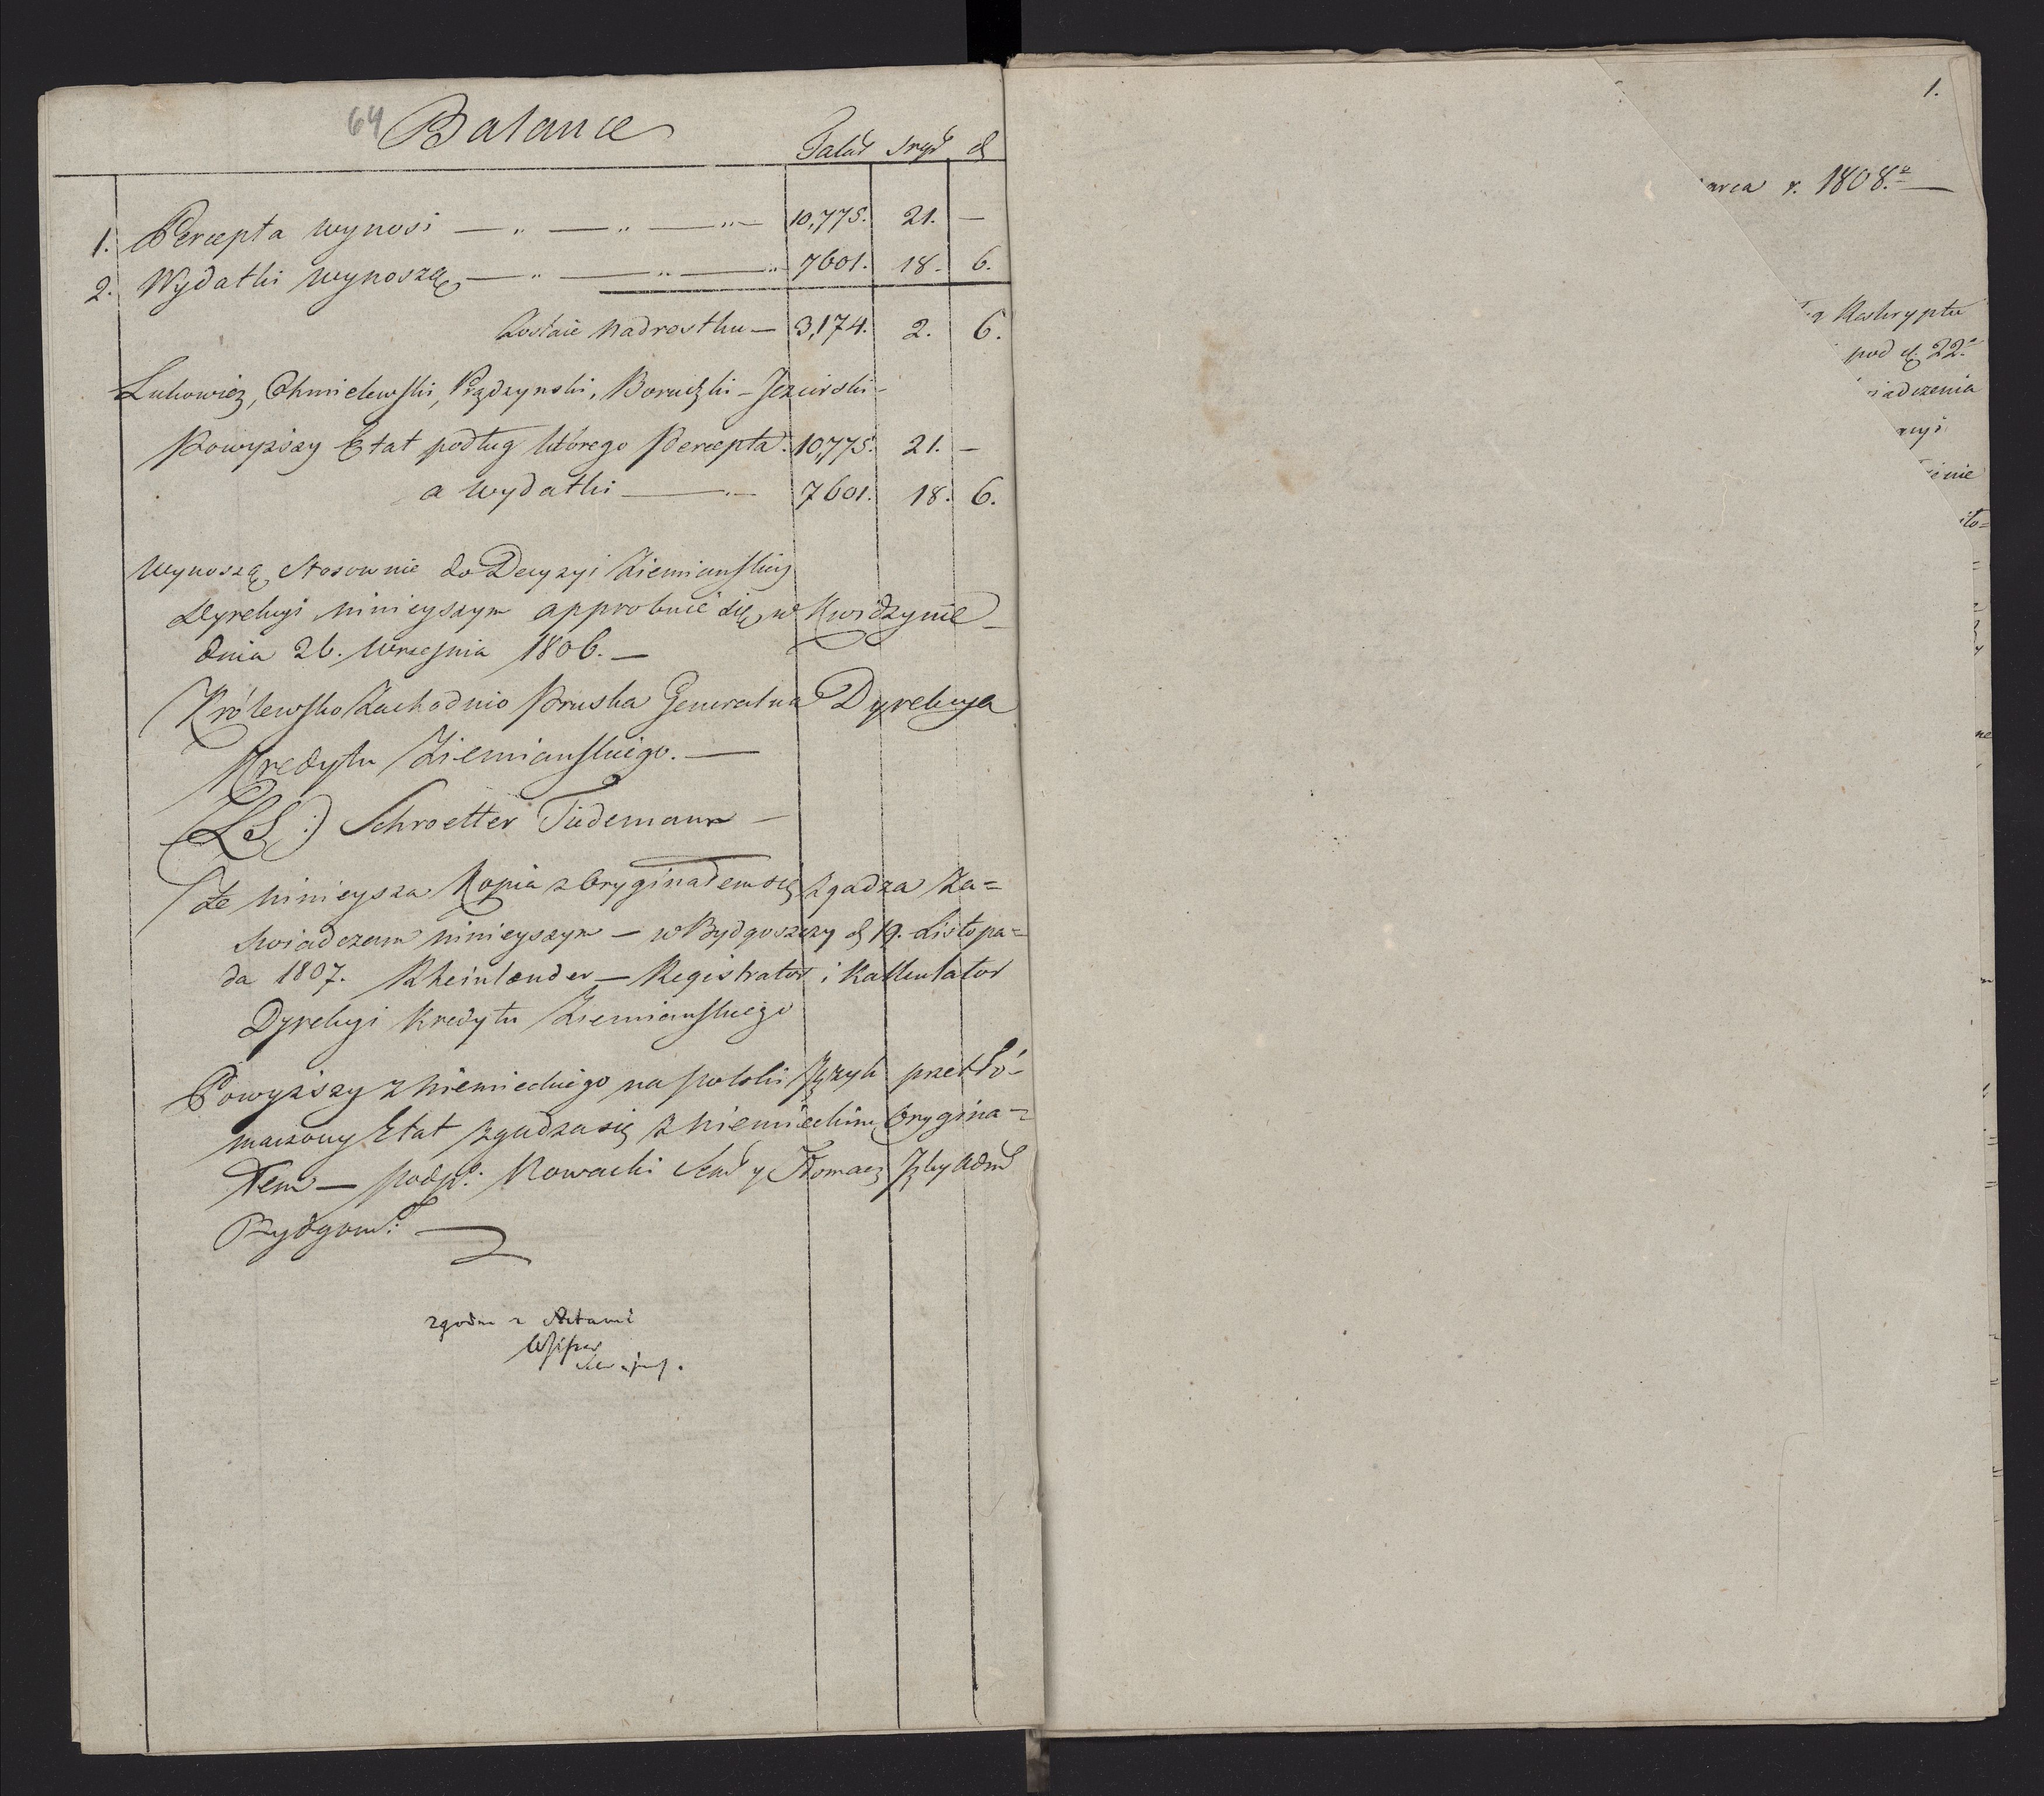 64 Balance
Talar srgr d
1. Percepta wynosi — „ — „ — „ — 10,775. 21. —
2. Wydatki wynoszą — „ — „ — „ 7601. 18. 6.
Zostaie nadrostku — 3,174. 2. 6.
Lukowicz, Chmielewski, Prądzynski, Borucki — Jezierski —
Powyższy Etat podług którego Percepta 10,775. 21. —
a wydatki — „ — 7601. 18. 6.
wynoszą, stosownie do Decyzyi Ziemianskiey
Dyrekcyi ninieyszym approbuie się, w Kwidzynie —
dnia 26. Wrzesnia 1806. —
Królewsko Zachodnio Pruska Generalna Dyrekcya
Kredytu Ziemianskiego. —
(LS:) Schroetter Tiedemann —
Że ninieysza Kopia z Oryginałem się zgadza za=
swiadczam ninieyszym — w Bydgoszczy d 19. Listopa=
da 1807. Rheinlaender — Registrator i Kalkulator
Dyrekcyi Kredytu Ziemianskiego
Powyższy z niemieckiego na polski Język przetłó-
maczony Etat zgadza się z niemieckim Orygina=
łem — podp: Nowacki Sekr y Tłomacz Izby Adm
Bydgow:
zgodno z Aktami
1.
arca r. 1808.
Reskryptu
pod d. 22.
iadczenia
cyi
enie
ito=